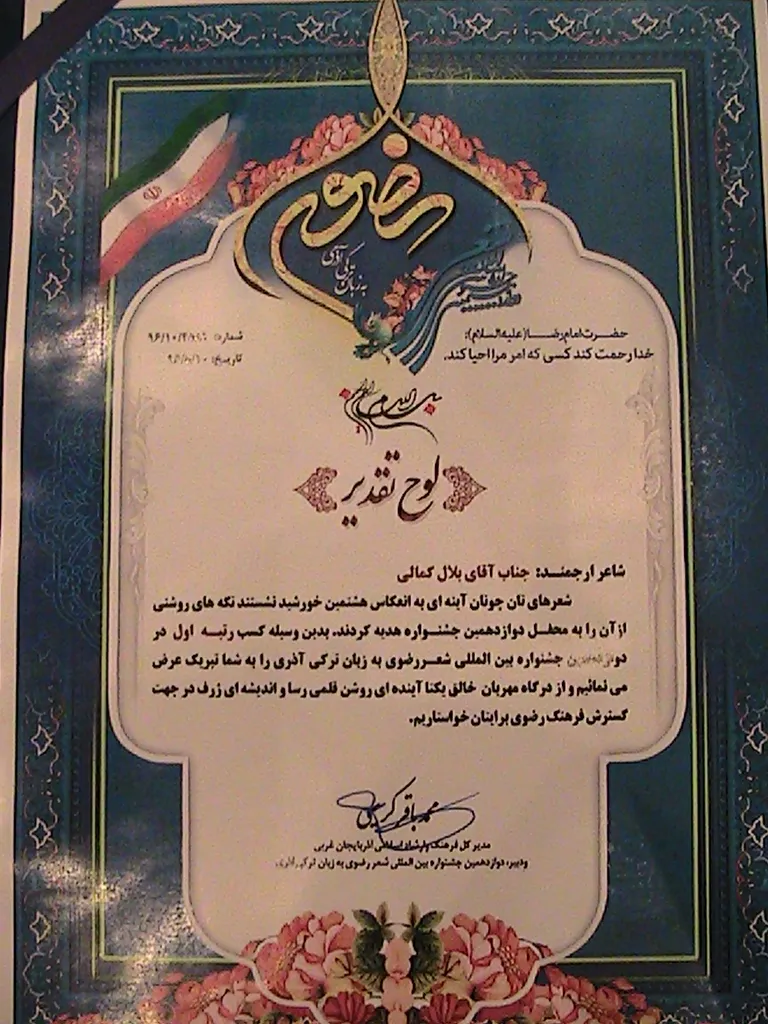 رضوی
به زبان ترکی آذری
حضرت امام رضا(علیه السلام):
خدا رحمت کند کسی که امر مرا احیا کند.
شماره:
تاریخ:
لوح تقدیر
شاعر ارجمند: جناب آقای بلال کمالی
شعرهای تان چونان آینه ای به انعکاس هشتمین خورشید نشستند تکه های روشنی
از آن را به محفل دوازدهمین جشنواره هدیه کردند. بدین وسیله کسب رتبه اول در
دوازدهمین جشنواره بین المللی شعر رضوی به زبان ترکی آذری را به شما تبریک عرض
می نمائیم و از درگاه مهربان خالق یکتا آینده ای روشن قلمی رسا و اندیشه ای ژرف در جهت
گسترش فرهنگ رضوی برایتان خواستاریم.
محمد باقر کریمی
مدیر کل فرهنگ و ارشاد اسلامی آذربایجان غربی
ودبیر، دوازدهمین جشنواره بین المللی شعر رضوی به زبان ترکی آذری